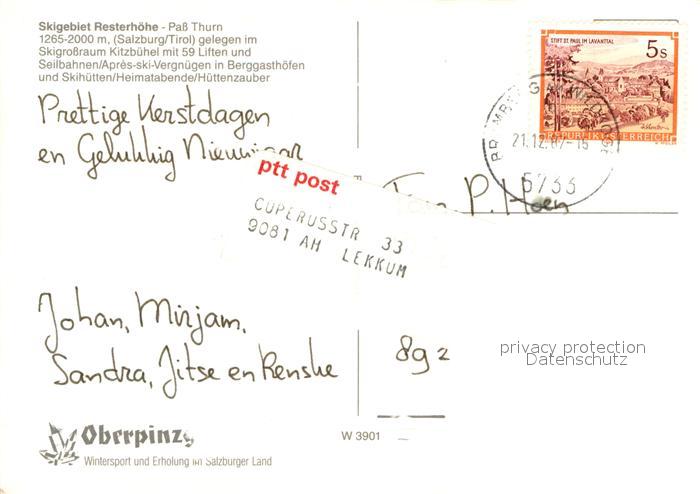 Skigebiet Resterhöhe - Paß Thurn
1265-2000 m, (Salzburg/Tirol) gelegen im
Skigroßraum Kitzbühel mit 59 Liften und
Seilbahnen/Après-ski-Vergnügen in Berggasthöfen
und Skihütten/Heimatabende/Hüttenzauber
STIFT ST. PAUL IM LAVANTTAL
5s
REPUBLIK ÖSTERREICH
21.12.87-15
5733
Prettige Kerstdagen
en Gelukkig
ptt post
Fam P. Hoen
CUPERUSSTR 33
9081 AH LEKKUM
Johan, Mirjam,
Sandra, Jitse en Renske
89 2
privacy protection
Datenschutz
Oberpinz
W 3901
Wintersport und Erholung im Salzburger Land